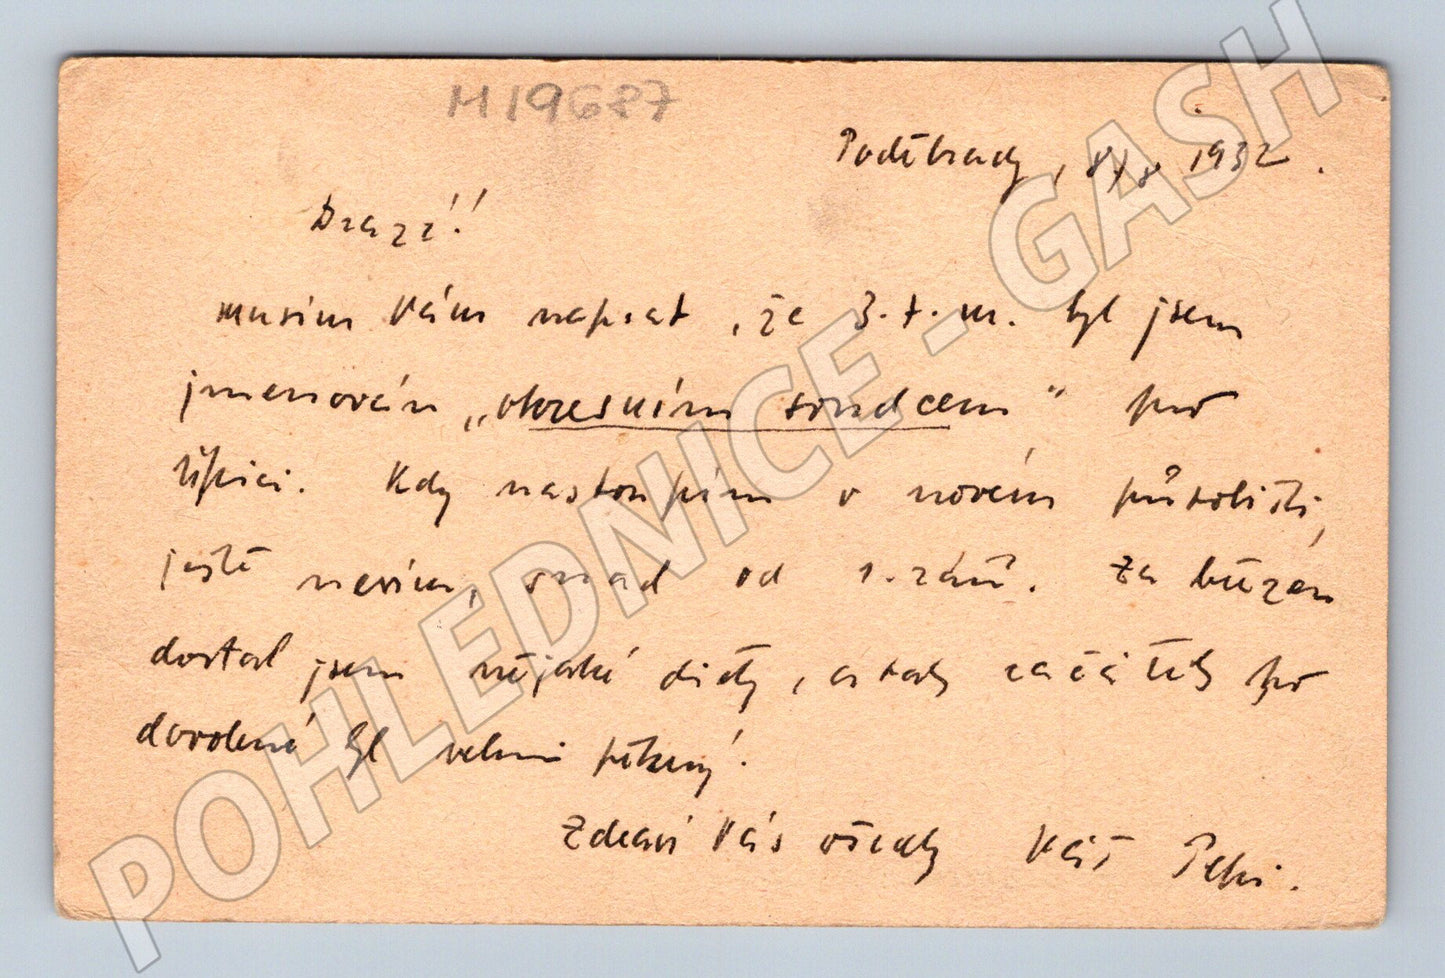 M19687
Poděbrady, 8/8 1932.
Drazí!
musím Vám napsat, že 3. t. m. byl jsem
jmenován „okresním soudcem" pro
Kdy nastoupím v novém působišti,
ještě nevím, snad od 1. září. Za
dostal jsem nějaké diety, a tady začátek po
dovolené byl velmi pěkný.
Zdraví Vás všecky Váš Pepi.
POHLEDNICE - GASH